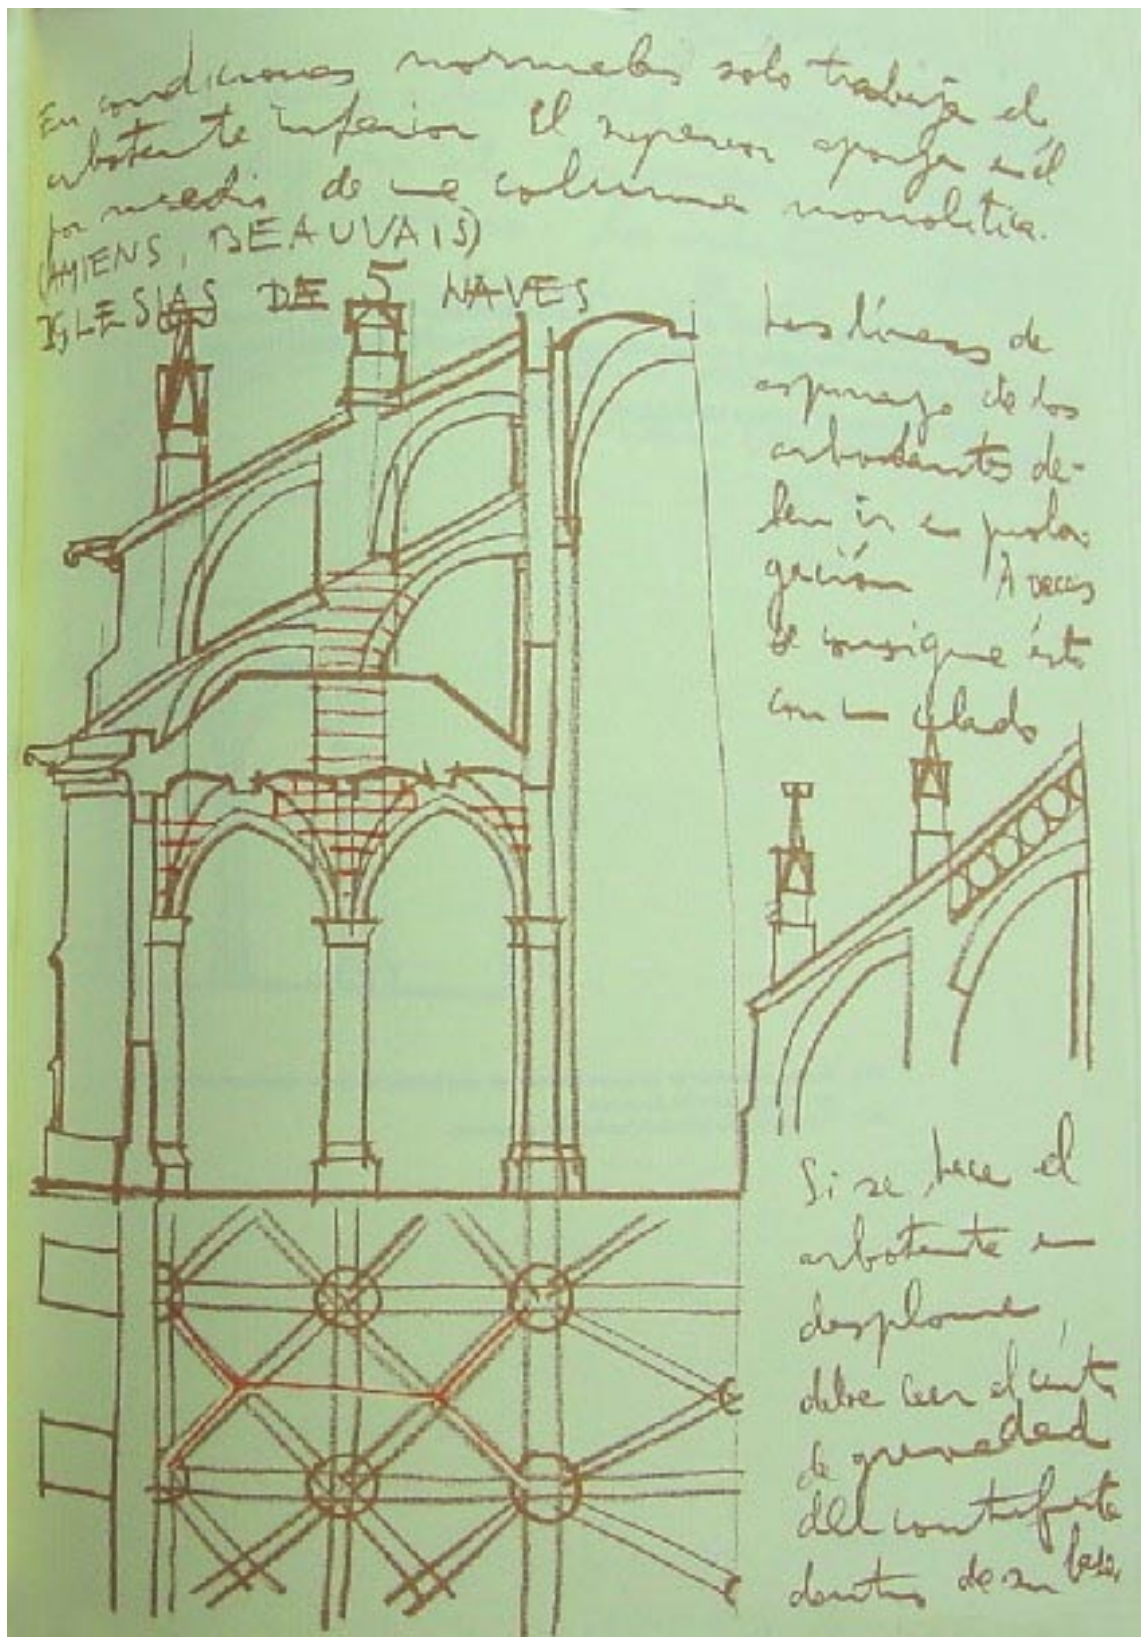 En condiciones normales solo trabaja el
arbotante inferior El superior apoya en él
por medio de una columna monolítica.
(AMIENS, BEAUVAIS)
IGLESIAS DE 5 NAVES
Las líneas de
empuje de los
arbotantes de-
ben ir en prolon-
gación A veces
se consigue ésto
con un calado
Si se hace el
arbotante en
desplome,
debe caer el centro
de gravedad
del contrafuerte
dentro de su base.